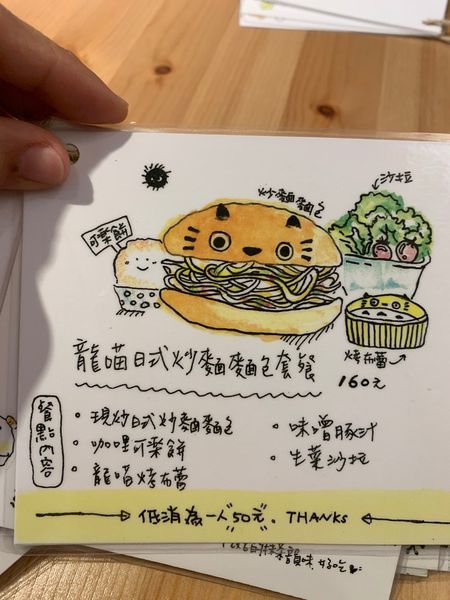 沙拉
炒麵麵包
可樂餅
烤布蕾
龍喵日式炒麵麵包套餐
160元
餐點內容
• 現炒日式炒麵麵包
• 咖哩可樂餅
• 龍喵烤布蕾
• 味噌豚汁
• 生菜沙拉
低消為一人"50元". THANKS